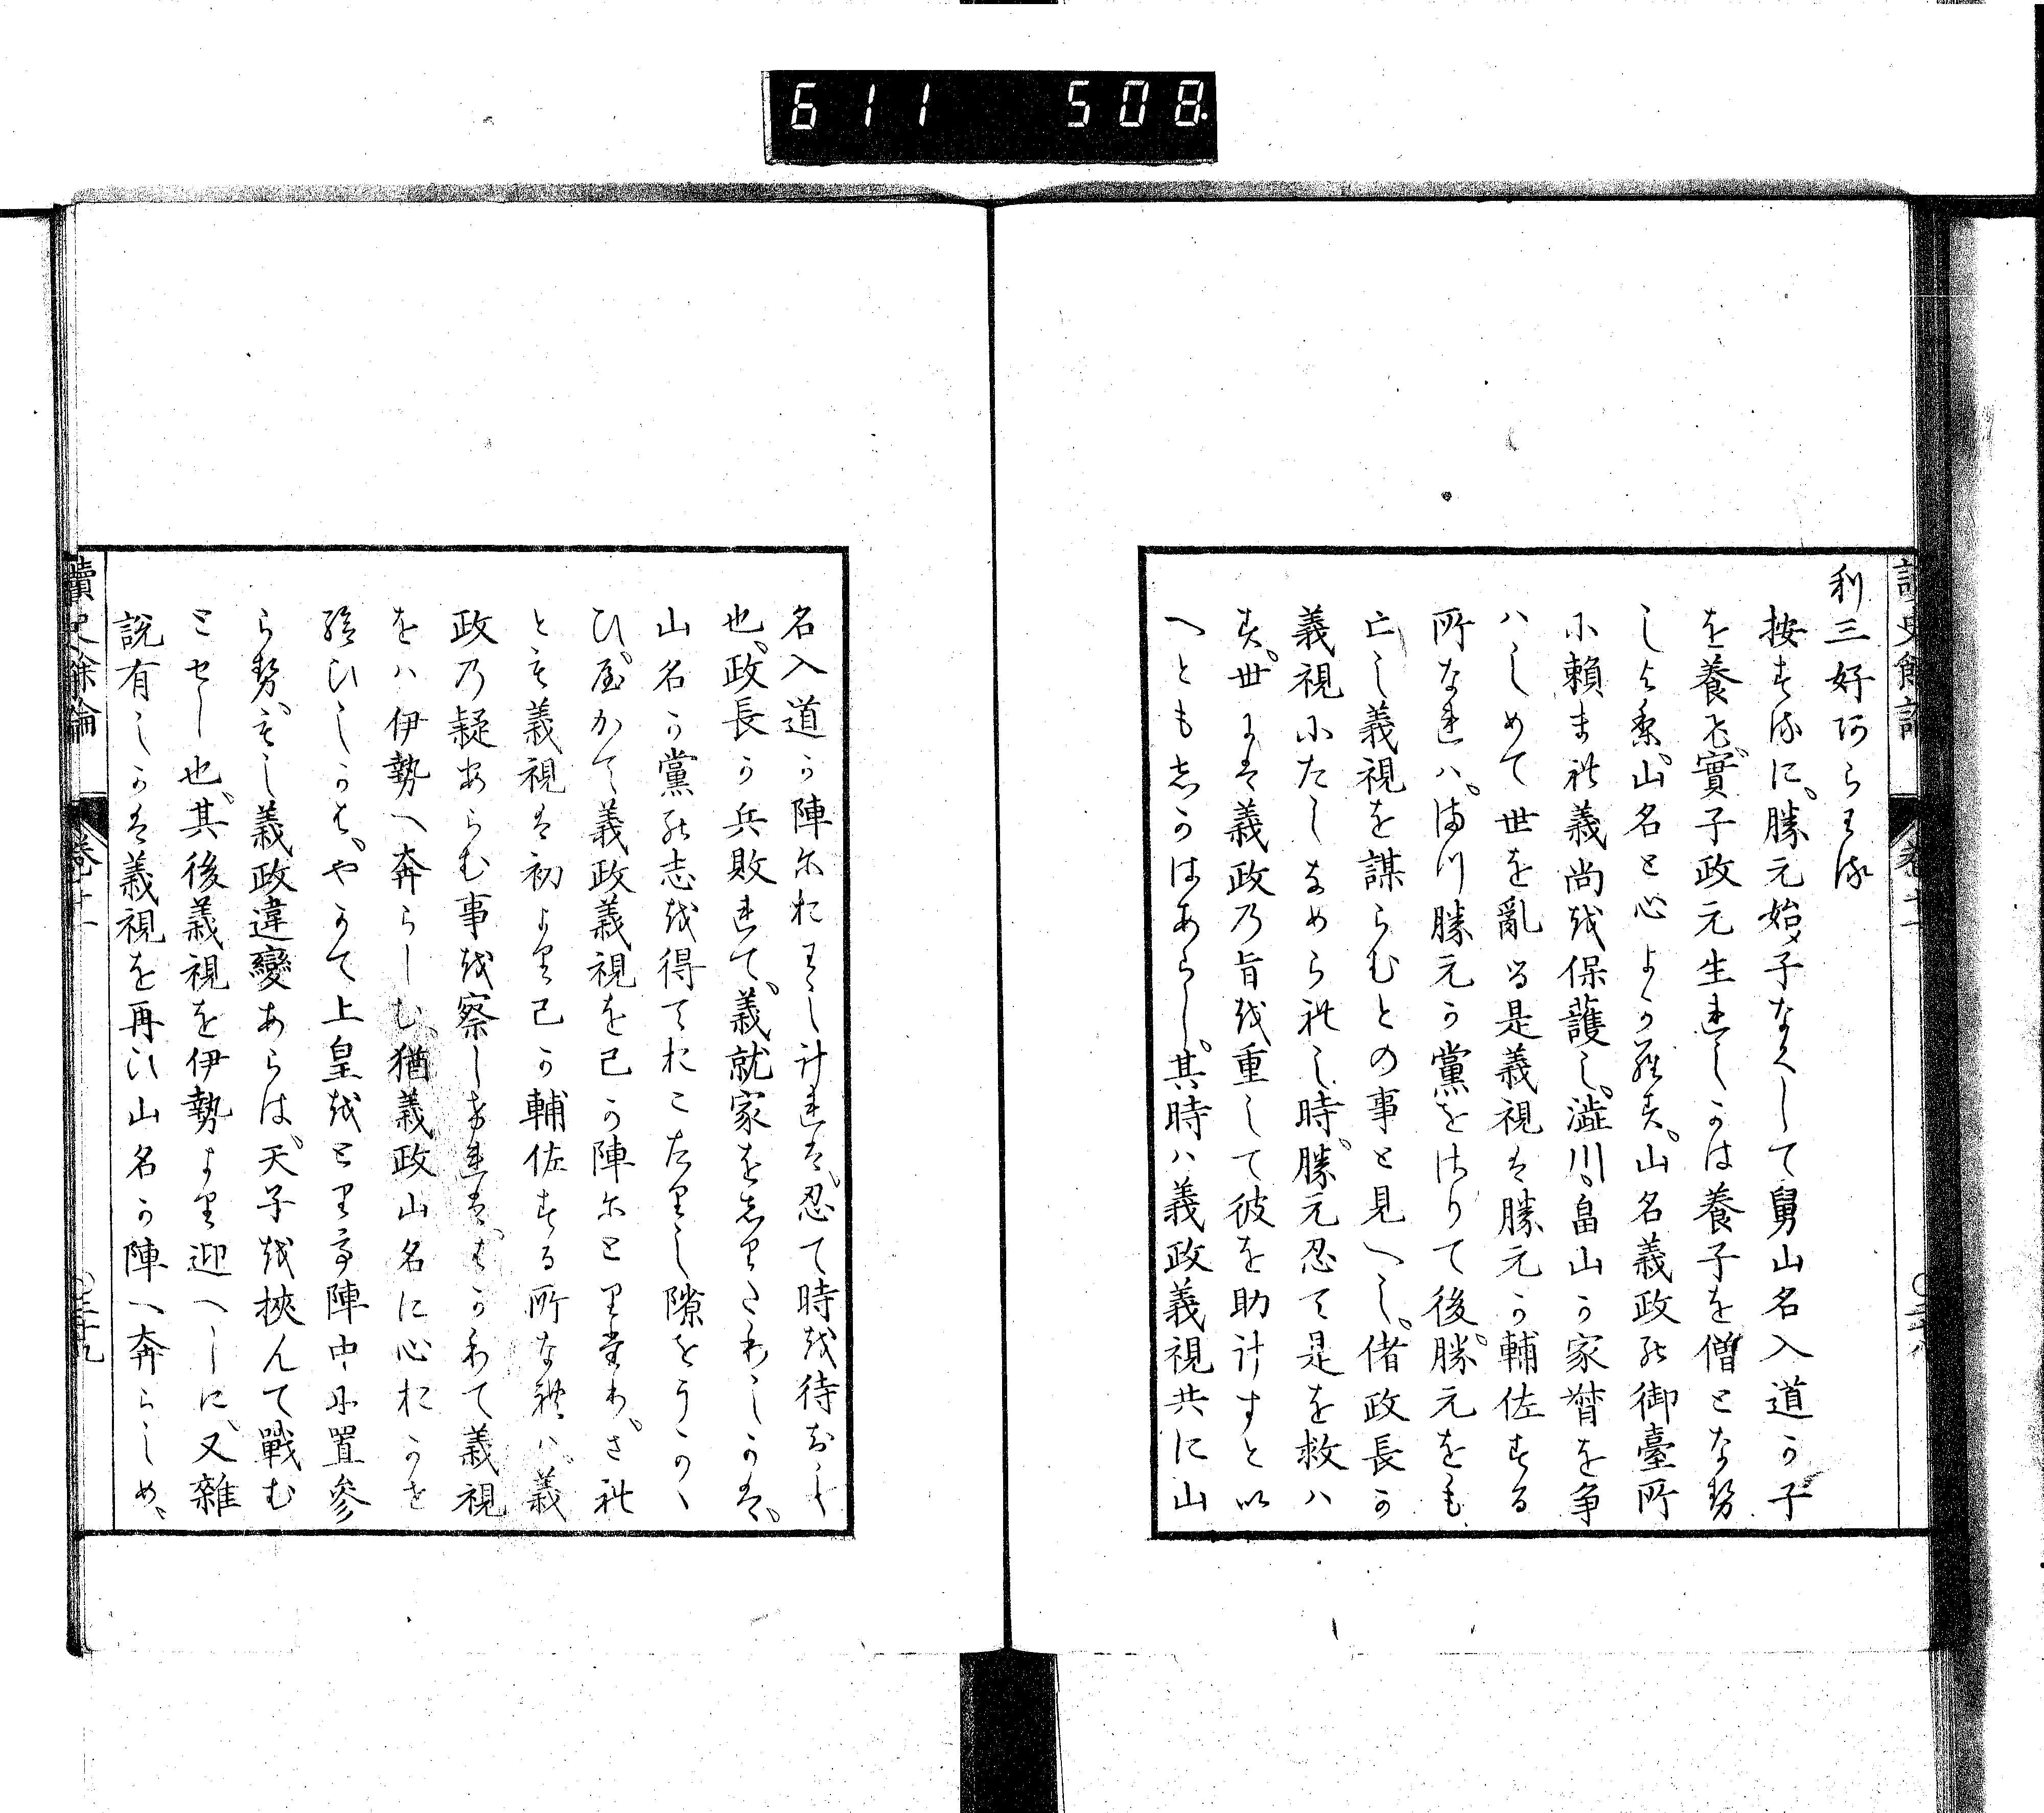 611 508
讀史餘論 卷十一 〇三十八
利三好阿らそふ
按するに。勝元始メ子なくして舅山名入道か子
を養ひ。實子政元生れしかは養子を僧となせ
しより。山名と心よからす。山名義政の御臺所
に頼まれ義尚を保護し。澁川畠山か家督を爭
ハしめて世を亂る是義視は勝元か輔佐する
所なれハ。まつ勝元か黨をけつりて後。勝元をも
亡し義視を謀らむとの事と見へし。偖政長か
義視にたしなめられし時。勝元忍て是を救ハ
す。世には義政の旨を重して彼を助けすと以
へとも志かはあらし。其時ハ義政義視共に山
名入道か陣におはし計れは。忍て時を待おりし
也。政長か兵敗れて。義就家をしりそきしかは。
山名か黨の志を得ておこたりし隙をうかゝ
ひ。やかて義政義視を己か陣にとりこめ。され
とも義視は初より己か輔佐する所なれハ。義
政の疑あらむ事を察しけれは。はかりて義視
をハ伊勢へ奔らしむ。猶義政山名に心おかせ
給ひしかは。やかて上皇をとりこ陣中に置參
らせ。もし義政違變あらは。天子を挾んて戰む
とせし也。其後義視を伊勢より迎へしに。又雜
説有しかは義視を再ひ山名か陣へ奔らしめ。
讀史餘論 卷十一 〇三十九